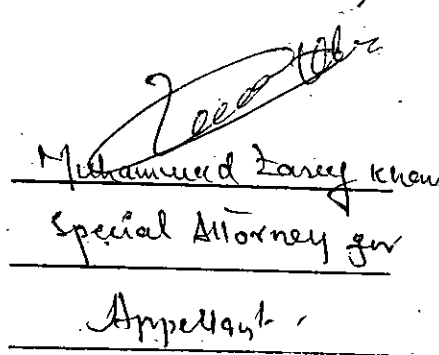 Muhammad Zareef Khan
Special Attorney for
Appellant.